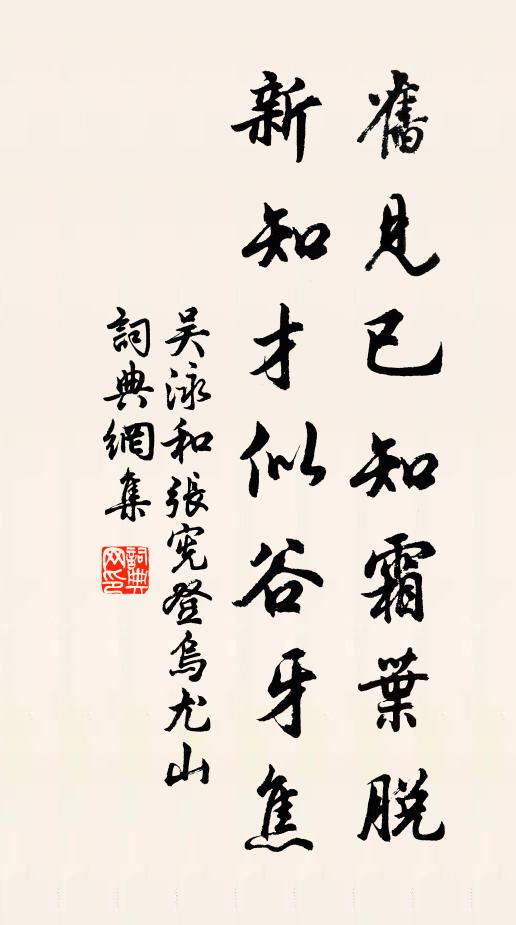 舊見已知霜葉脫
新知才似谷牙焦
吴泳和張宪登烏尤山
詞典網集
詞典
网印